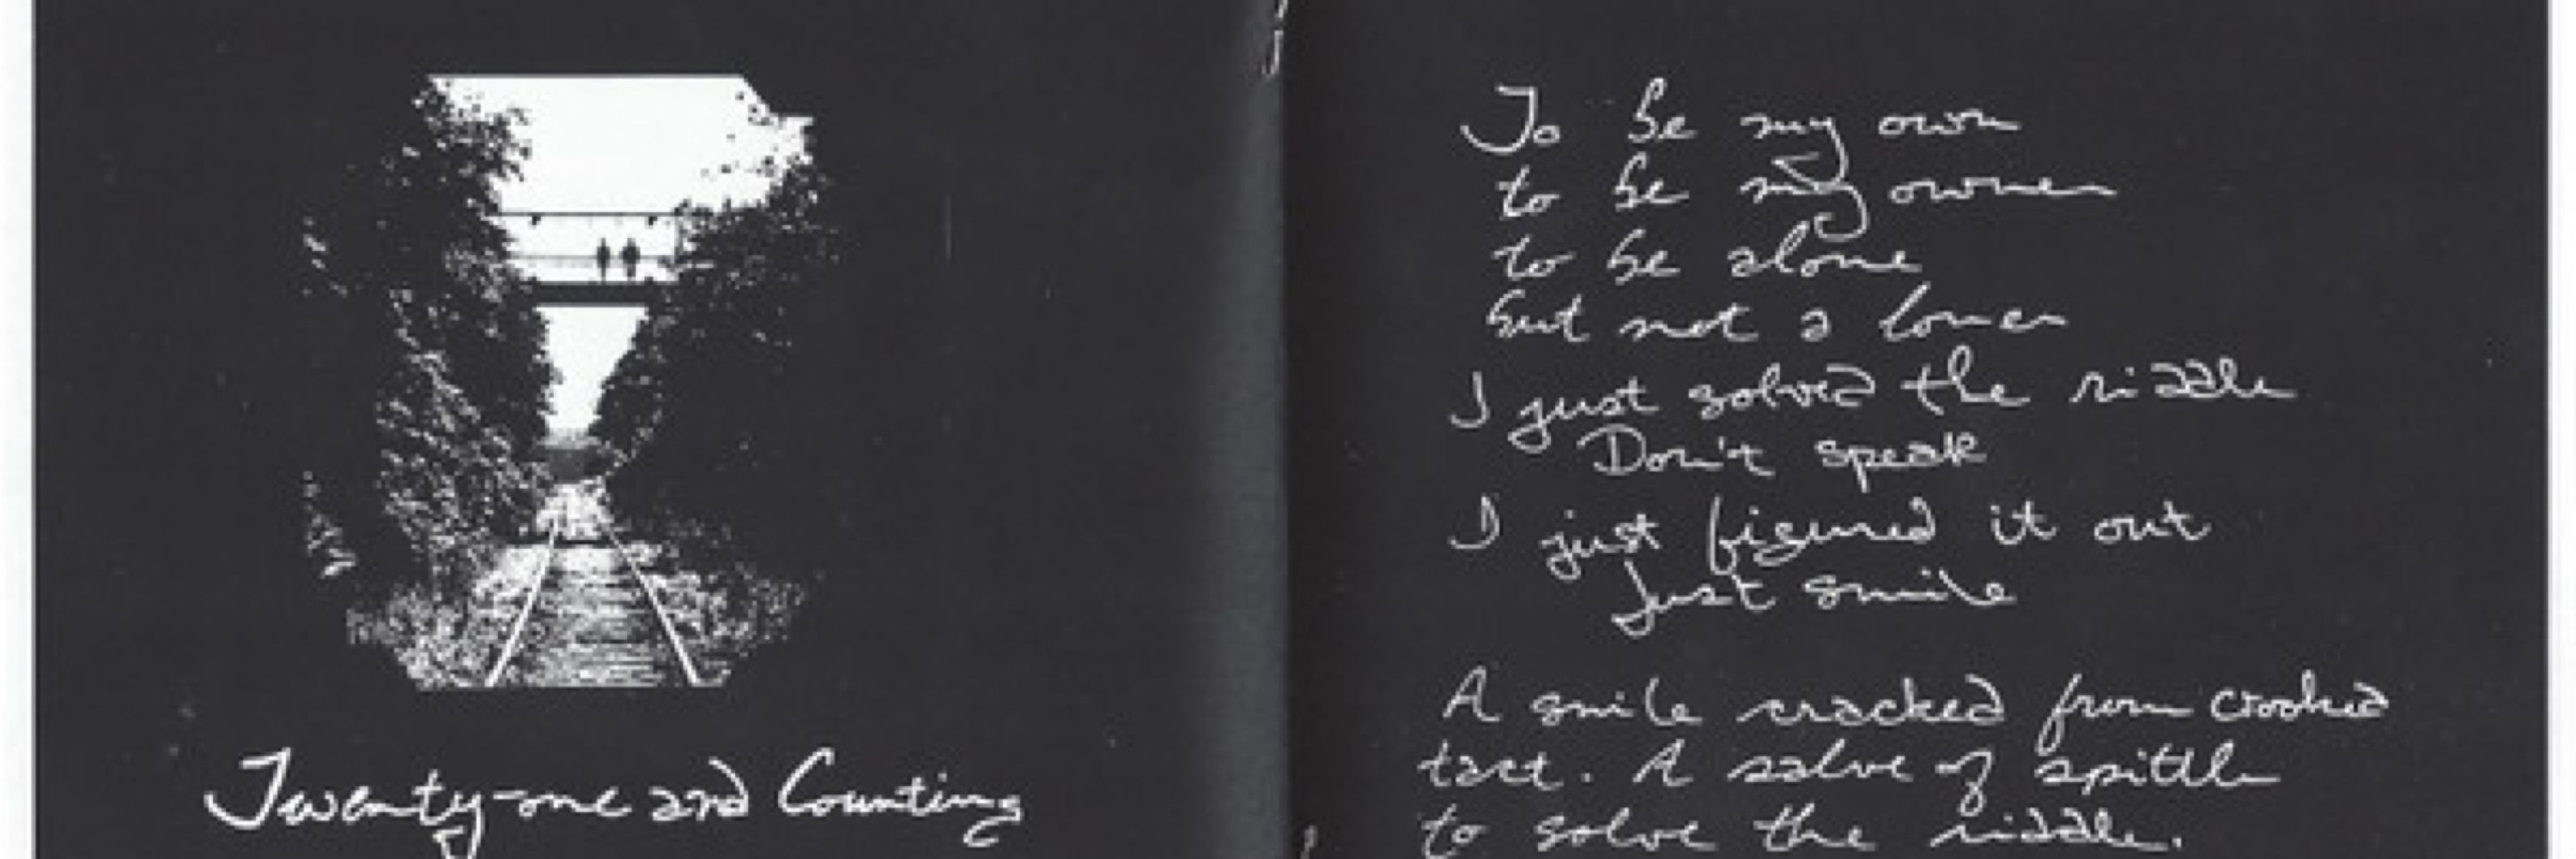 Twenty-one and Counting
To be my own
to be my owner
to be alone
but not a loner
I just solved the riddle
Don't speak
I just figured it out
Just smile
A smile cracked from crooked
tact. A salve of spittle
to solve the riddle.